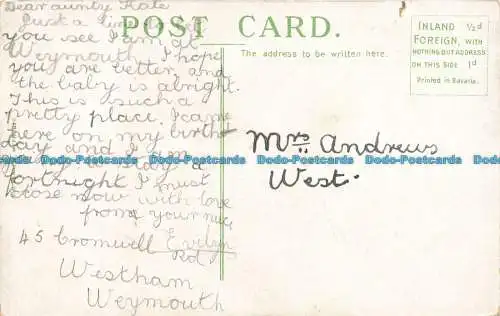 Dear aunty Kate
Just a line to let
you see I am at
Weymouth. I hope
you are better, and
the baby is alright.
This is such a
pretty place. I came
here on my birth
day and I am
a
fortnight I must
close now with love
from your
Evelyn
45 Cromwell Rd
Westham
Weymouth
POST CARD.
The address to be written here.
INLAND ½d
FOREIGN, WITH
NOTHING BUT ADDRESS
ON THIS SIDE 1d
Printed in Bavaria.
Mrs Andrews
West.
Dodo-Postcards Dodo-Postcards Dodo-Postcards Dodo-Postcards Dodo-Postcards